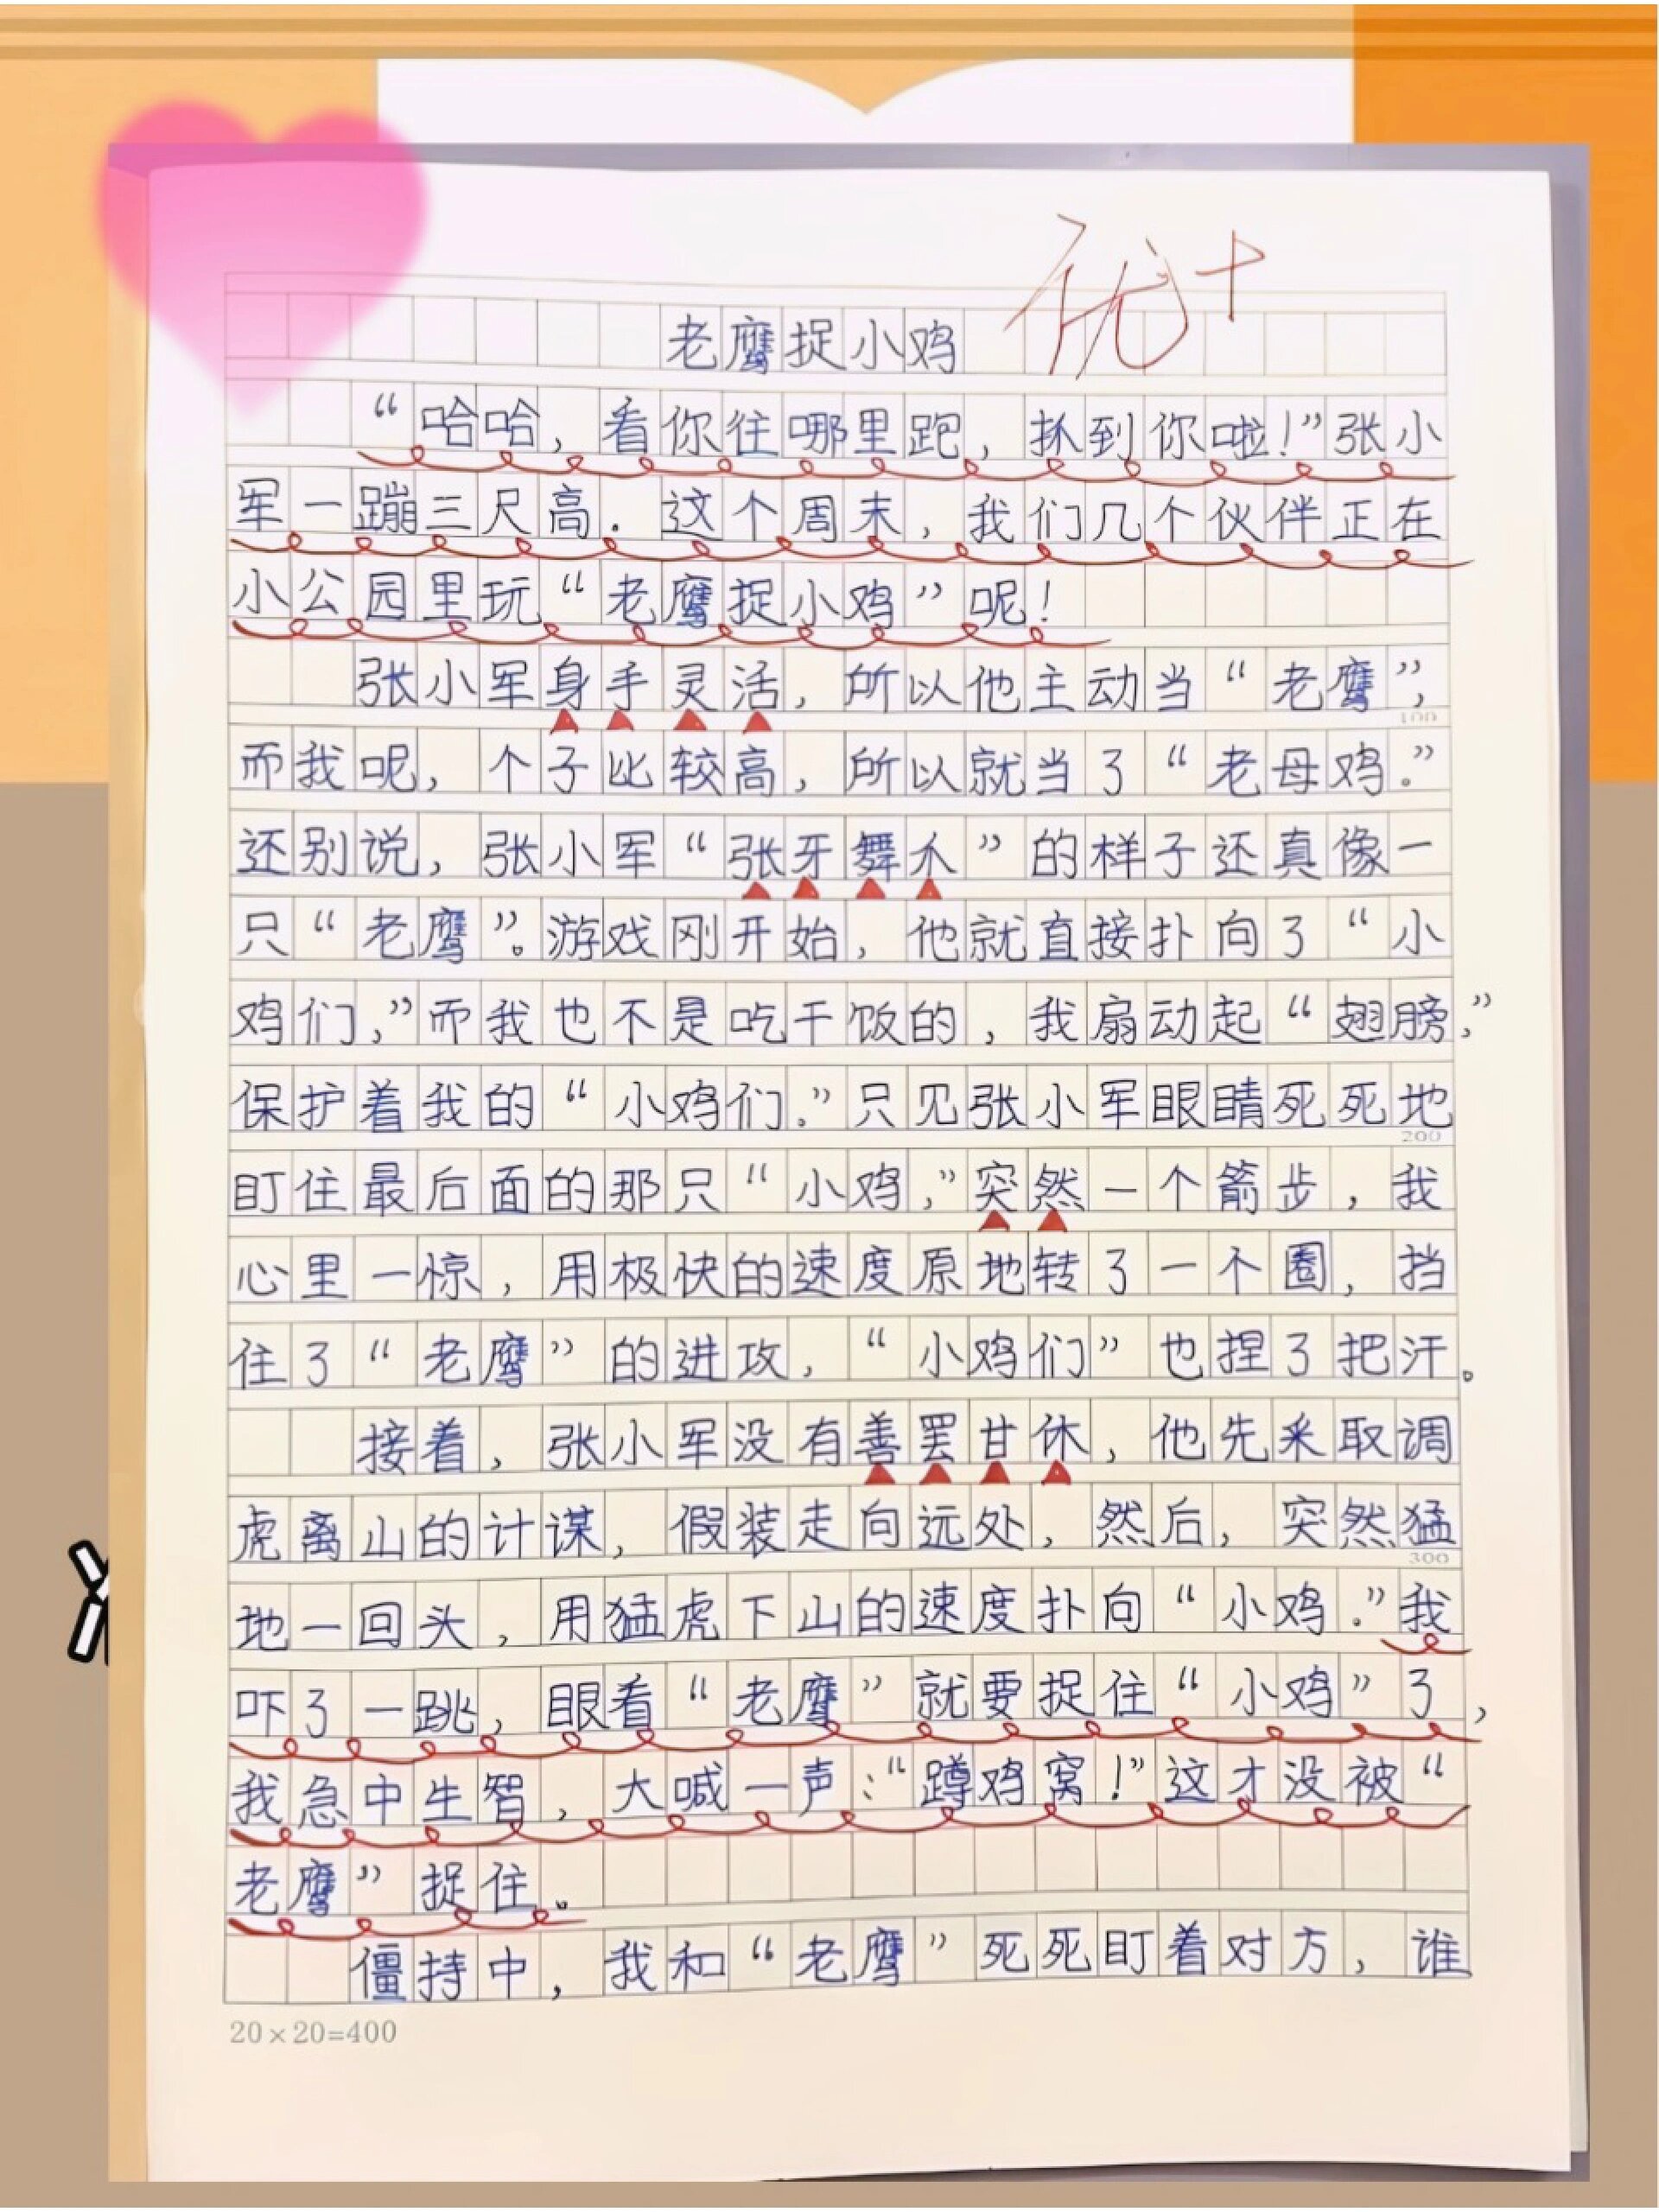 优+
老鹰捉小鸡
“哈哈，看你往哪里跑，抓到你啦！”张小
军一蹦三尺高．这个周末，我们几个伙伴正在
小公园里玩“老鹰捉小鸡”呢！
张小军身手灵活，所以他主动当“老鹰”，
而我呢，个子比较高，所以就当了“老母鸡。”
还别说，张小军“张牙舞爪”的样子还真像一
只“老鹰”。游戏刚开始，他就直接扑向了“小
鸡们，”而我也不是吃干饭的，我扇动起“翅膀，”
保护着我的“小鸡们。”只见张小军眼睛死死地
100
200
盯住最后面的那只“小鸡，”突然一个箭步，我
心里一惊，用极快的速度原地转了一个圈，挡
住了“老鹰”的进攻，“小鸡们”也捏了把汗。
接着，张小军没有善罢甘休，他先采取调
虎离山的计谋，假装走向远处，然后，突然猛
300
地一回头，用猛虎下山的速度扑向“小鸡。”我
吓了一跳，眼看“老鹰”就要捉住“小鸡”了，
我急中生智，大喊一声：“蹲鸡窝！”这才没被“
老鹰”捉住。
僵持中，我和“老鹰”死死盯着对方，谁
20×20=400